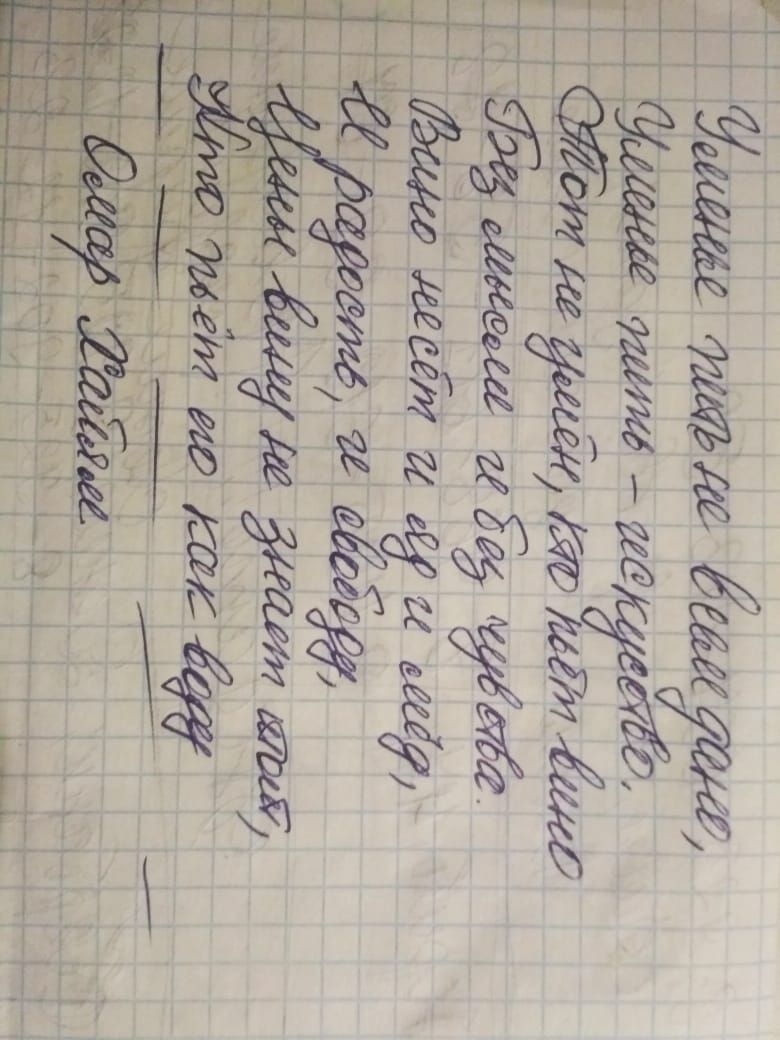 Уменье пить не всем дано,
Уменье пить – искуство.
Тот не умён, кто пьёт вино
Без мысли и без чувства.
Вино несёт и яд и мёд,
И радость, и свободу,
Цены вину не знает тот,
Кто пьёт его как воду
Омар Хайям